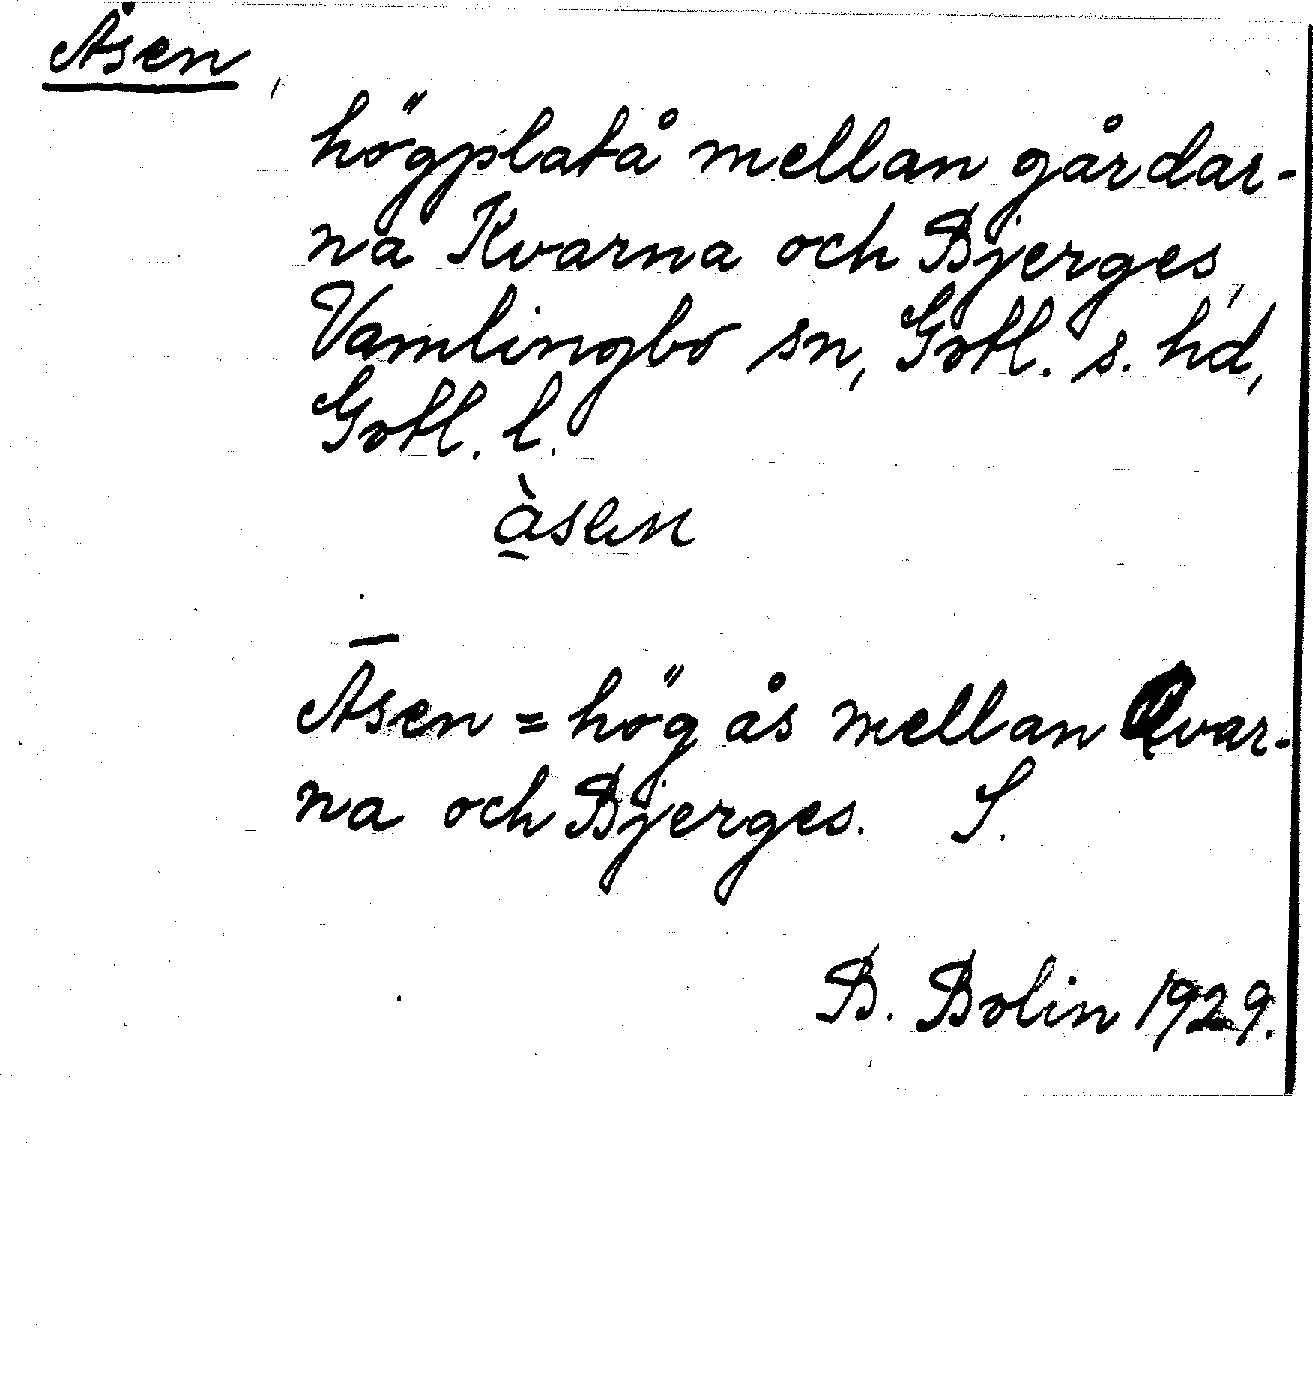 Åsen,
högplatå mellan gårdar-
na Kvarna och Bjerges,
Vamlingbo sn, Gotl. s. hd,
Gotl. l.
à̱sen
Āsen = hög ås mellan Qvar-
na och Bjerges. S.
B. Bolin 1929.